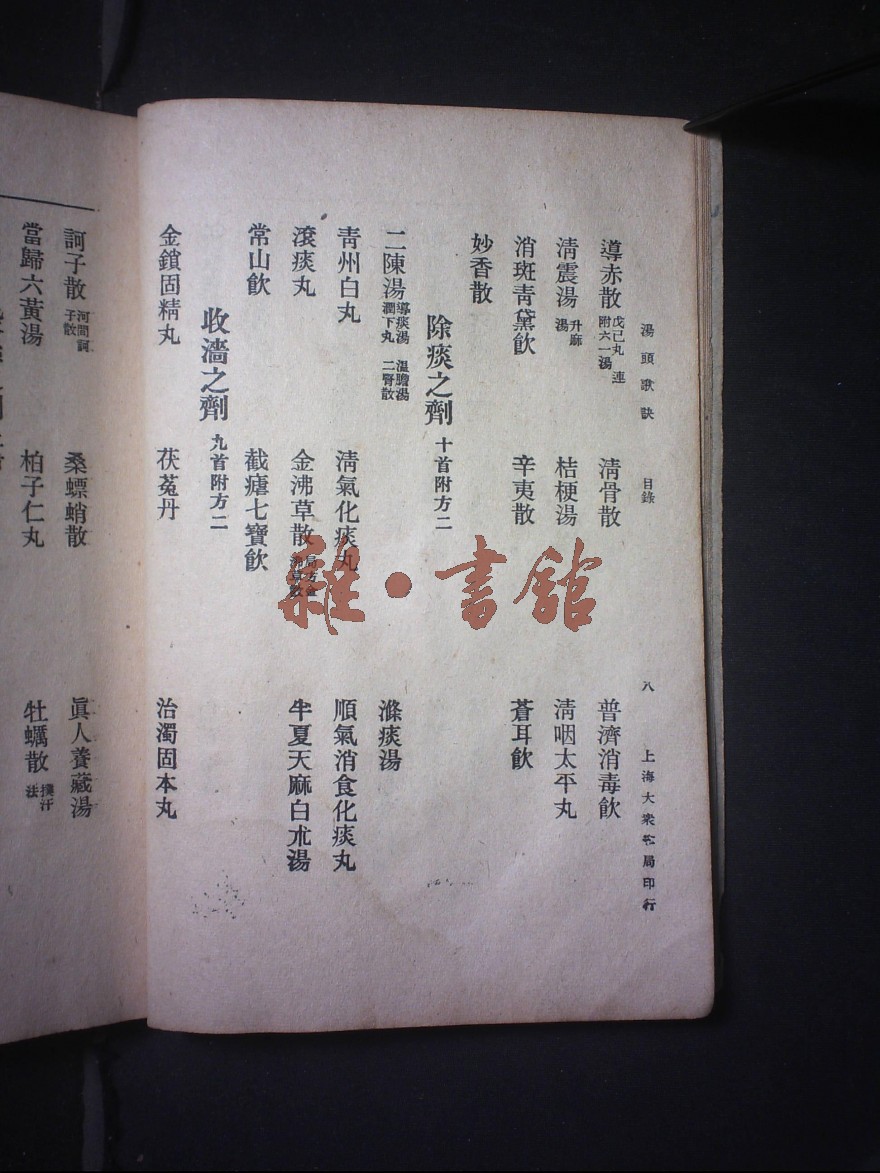 湯頭歌訣 目錄 八 上海大衆書局印行
導赤散 戊己丸 連附六一湯 清骨散 普濟消毒飲
清震湯 升麻湯 桔梗湯 清咽太平丸
消斑青黛飲 辛夷散 蒼耳飲
妙香散
除痰之劑 十首附方二
二陳湯 導痰湯 溫膽湯 潤下丸 二腎散 滌痰湯
青州白丸 清氣化痰丸 順氣消食化痰丸
滾痰丸 金沸草散 局方金沸草散 半夏天麻白朮湯
常山飲 截瘧七寶飲
收濇之劑 九首附方二
金鎖固精丸 茯菟丹 治濁固本丸
訶子散 河間訶子散 桑螵蛸散 眞人養藏湯
當歸六黃湯 柏子仁丸 牡蠣散 撲汗法
雜·書館